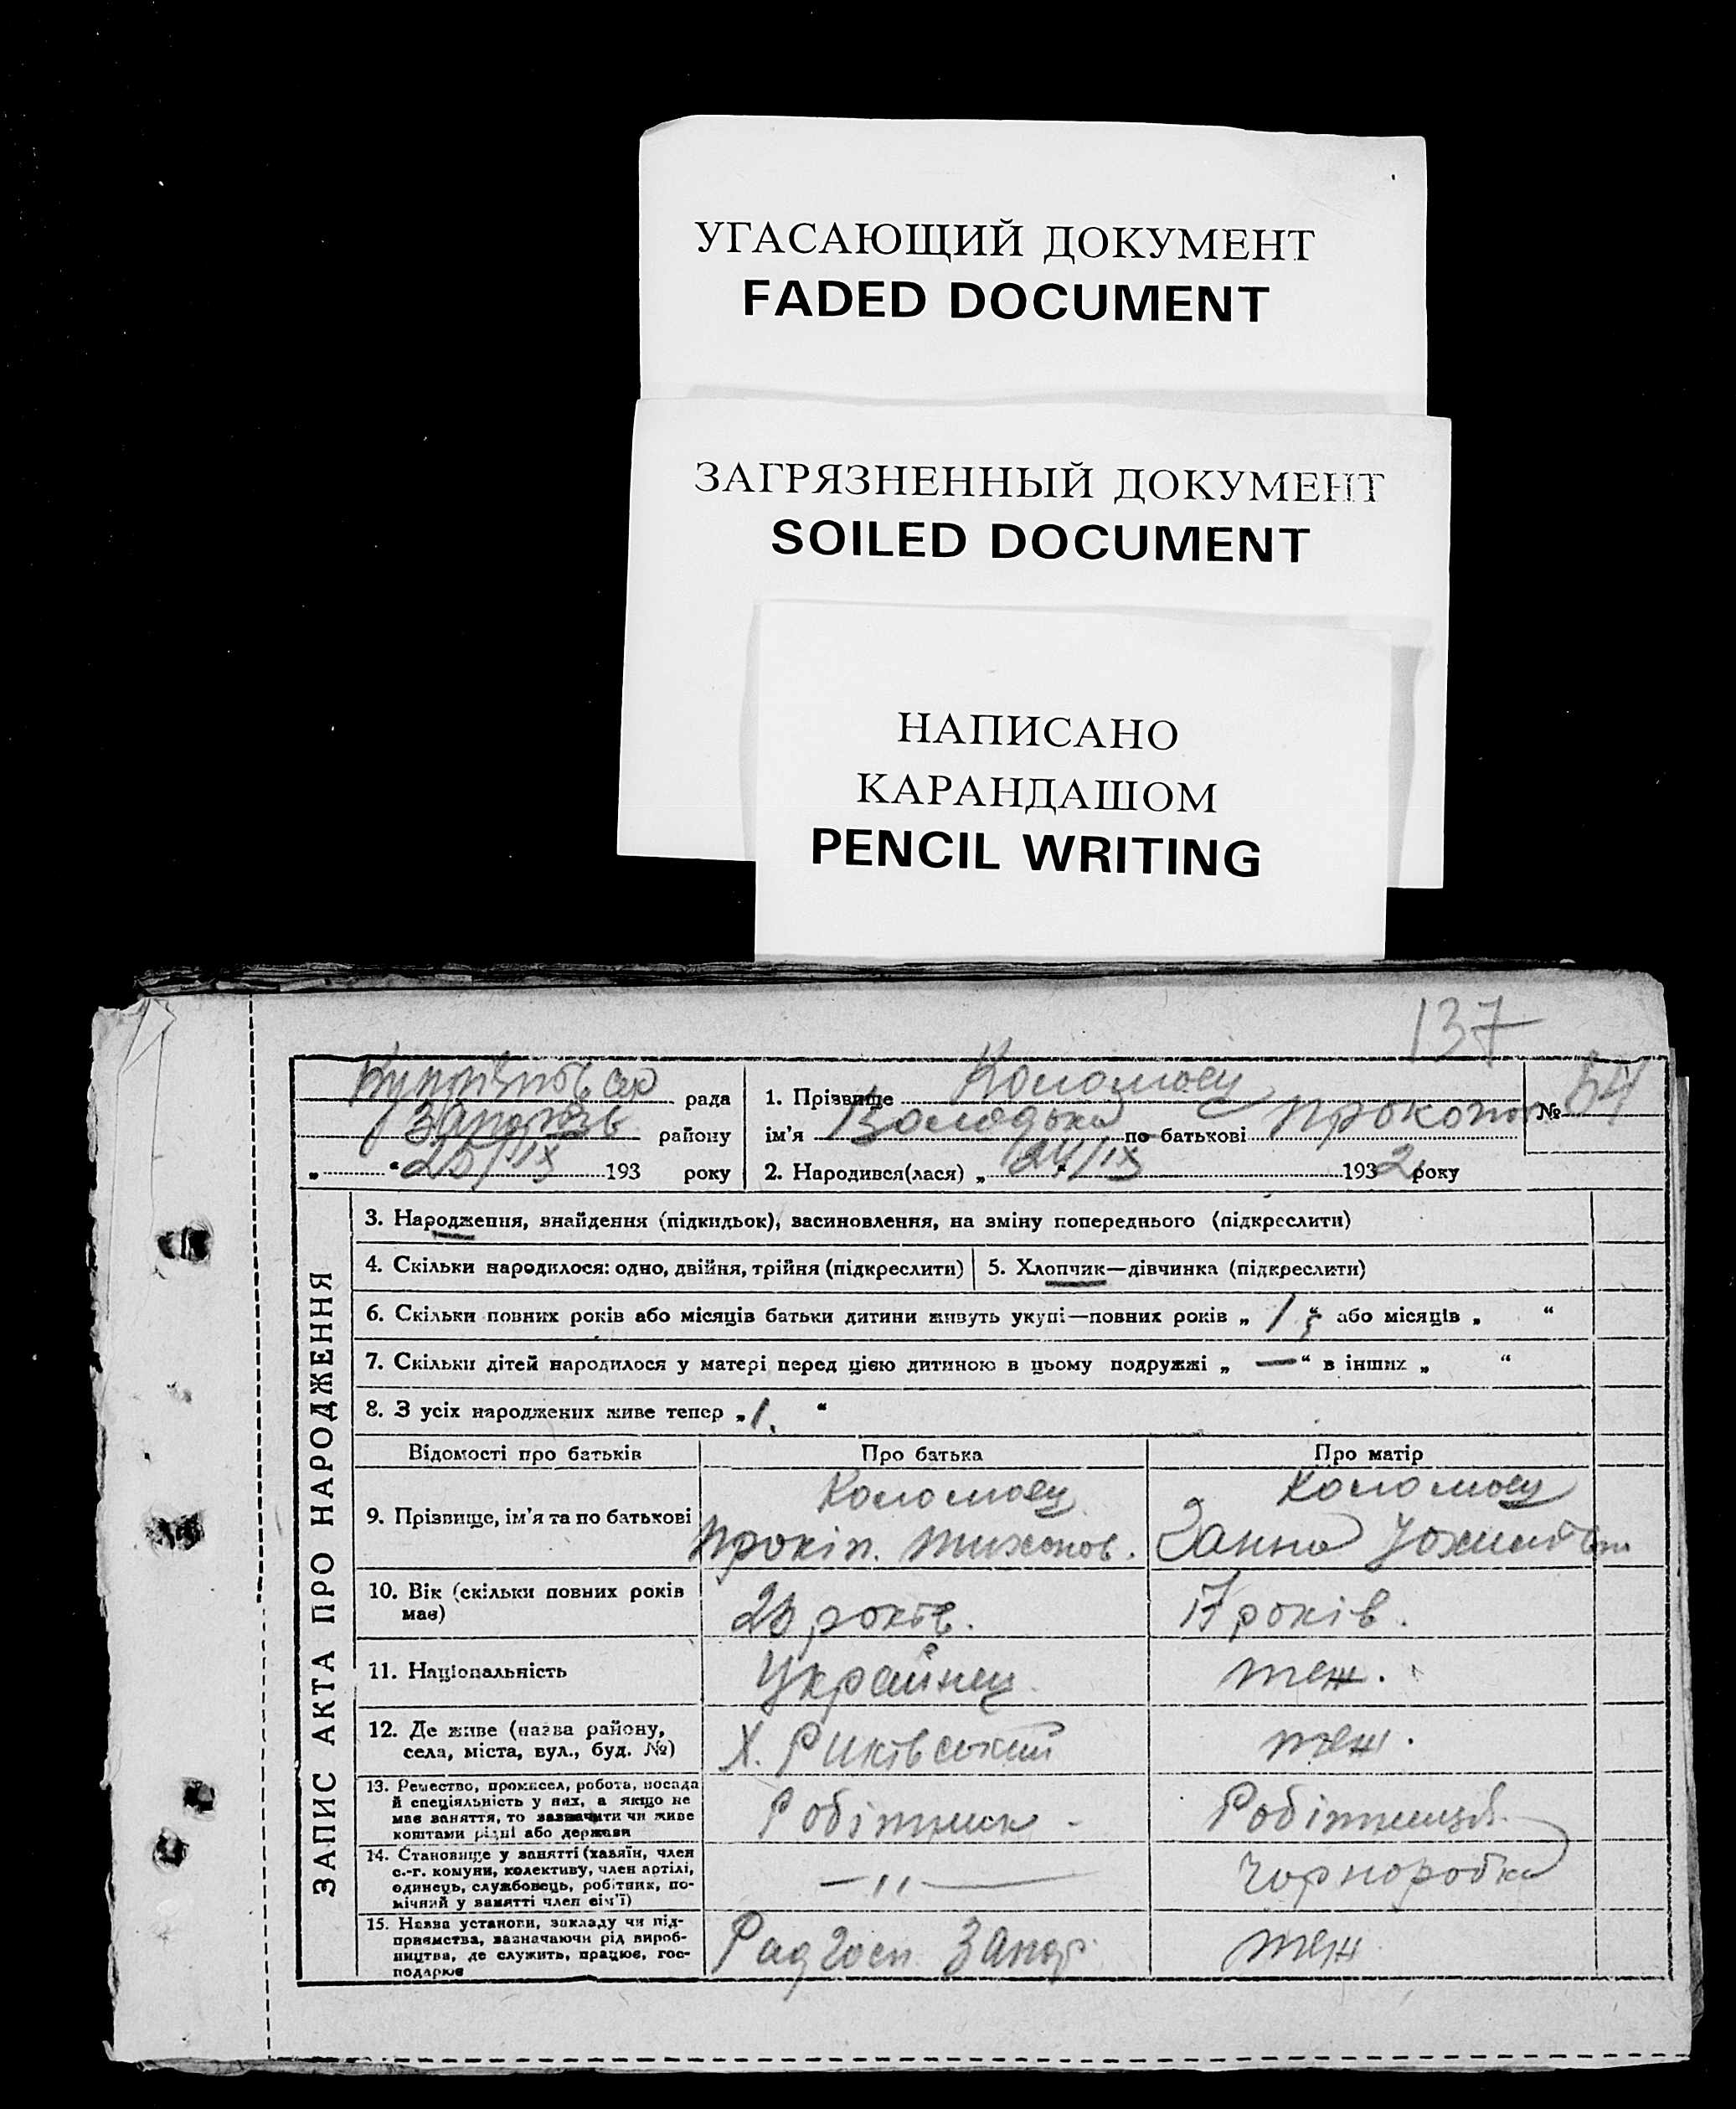 УГАСАЮЩИЙ ДОКУМЕНТ
FADED DOCUMENT
ЗАГРЯЗНЕННЫЙ ДОКУМЕНТ
SOILED DOCUMENT
НАПИСАНО
КАРАНДАШОМ
PENCIL WRITING
137
рада
району
25/IX 193 року
1. Прізвище Коломоец
ім'я Володька по батькові Прокопов
№ 54
2. Народився(лася) „ 24/IX 1932 року
ЗАПИС АКТА ПРО НАРОДЖЕННЯ
3. Народження, знайдення (підкидьок), засиновлення, на зміну попереднього (підкреслити)
4. Скільки народилося: одно, двійня, трійня (підкреслити)
5. Хлопчик—дівчинка (підкреслити)
6. Скільки повних років або місяців батьки дитини живуть укупі—повних років „ 1 “ або місяців „ “
7. Скільки дітей народилося у матері перед цією дитиною в цьому подружжі „ — “ в інших „ “
8. З усіх народжених живе тепер „ 1. “
Відомості про батьків
Про батька
Про матір
9. Прізвище, ім'я та по батькові
Коломоец
Прокіп. Тихонов.
Коломоец
Ганна
10. Вік (скільки повних років
має)
років.
17 років.
11. Національність
Украйнец
теж.
12. Де живе (назва району,
села, міста, вул., буд. №)
Х. Риківський
теж.
13. Ремество, промисел, робота, посада
й спеціяльність у них, а якщо не
має заняття, то зазначити чи живе
коштами рідні або держави
Робітник -
Робітниця
14. Становище у занятті (хазяїн, член
с.-г. комуни, колективу, член артілі,
одинець, службовець, робітник, по-
мічний у занятті член сім'ї)
— „ —
Чорноробка
15. Назва установи, закладу чи під-
приємства, зазначаючи рід вироб-
ництва, де служить, працює, гос-
подарює
Радгосп Запор
теж